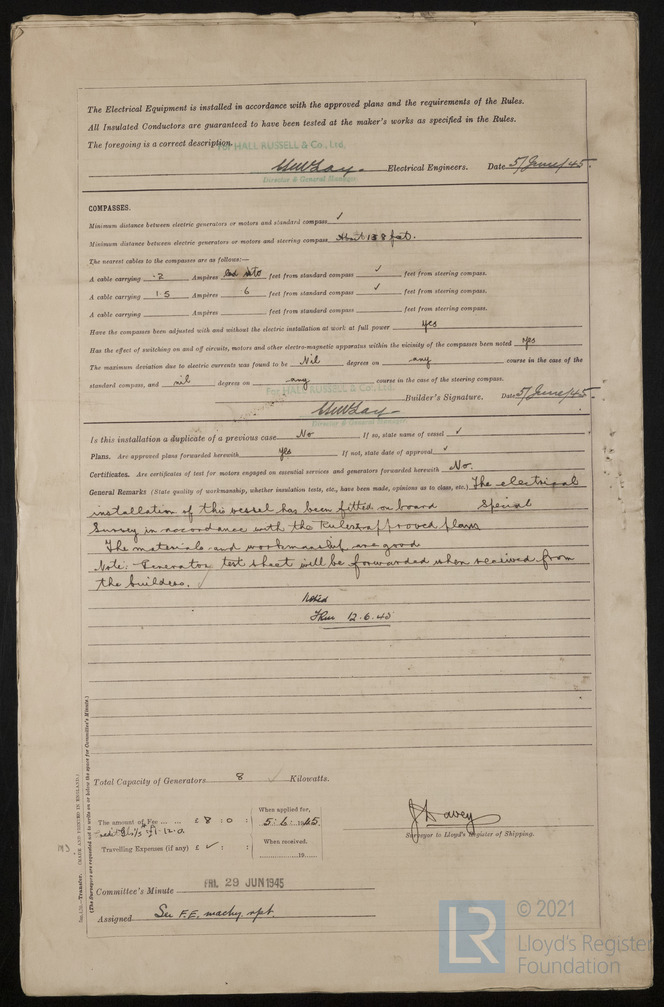 The Electrical Equipment is installed in accordance with the approved plans and the requirements of the Rules.
All Insulated Conductors are guaranteed to have been tested at the maker's works as specified in the Rules.
The foregoing is a correct description.
For HALL RUSSELL & Co., Ltd.
Electrical Engineers. Date 5/June/45.
Director & General Manager
COMPASSES.
Minimum distance between electric generators or motors and standard compass ✓
Minimum distance between electric generators or motors and steering compass About feet.
The nearest cables to the compasses are as follows:—
A cable carrying .2 Ampères feet from standard compass ✓ feet from steering compass.
A cable carrying 1.5 Ampères 6 feet from standard compass ✓ feet from steering compass.
A cable carrying Ampères feet from standard compass feet from steering compass.
Have the compasses been adjusted with and without the electric installation at work at full power yes
Has the effect of switching on and off circuits, motors and other electro-magnetic apparatus within the vicinity of the compasses been noted yes
The maximum deviation due to electric currents was found to be Nil degrees on any course in the case of the
standard compass, and nil degrees on any course in the case of the steering compass.
For HALL RUSSELL & Co., Ltd.
Builder's Signature. Date 5/June/45.
Director & General Manager
Is this installation a duplicate of a previous case No If so, state name of vessel ✓
Plans. Are approved plans forwarded herewith yes If not, state date of approval ✓
Certificates. Are certificates of test for motors engaged on essential services and generators forwarded herewith No.
General Remarks (State quality of workmanship, whether insulation tests, etc., have been made, opinions as to class, etc.) The electrical
installation of this vessel has been fitted on board Special
Survey in accordance with the Rules & approved plans
The materials and workmanship are good
Note: Generator test sheet will be forwarded when received from
the builders. ✓
Noted
12.6.45
Total Capacity of Generators 8 ✓ Kilowatts.
The amount of Fee ... ... £ 8 : 0 :
When applied for,
5.6.1945.
£1.12.0.
Travelling Expenses (if any) £ ✓ : :
When received.
19
J Davey
Surveyor to Lloyd's Register of Shipping.
Committee's Minute FRI. 29 JUN 1945
Assigned See F.E. machy rpt.
Transfer. (MADE AND PRINTED IN ENGLAND.)
(The Surveyors are requested not to write on or below the space for Committee's Minute.)
LR
© 2021
Lloyd's Register
Foundation